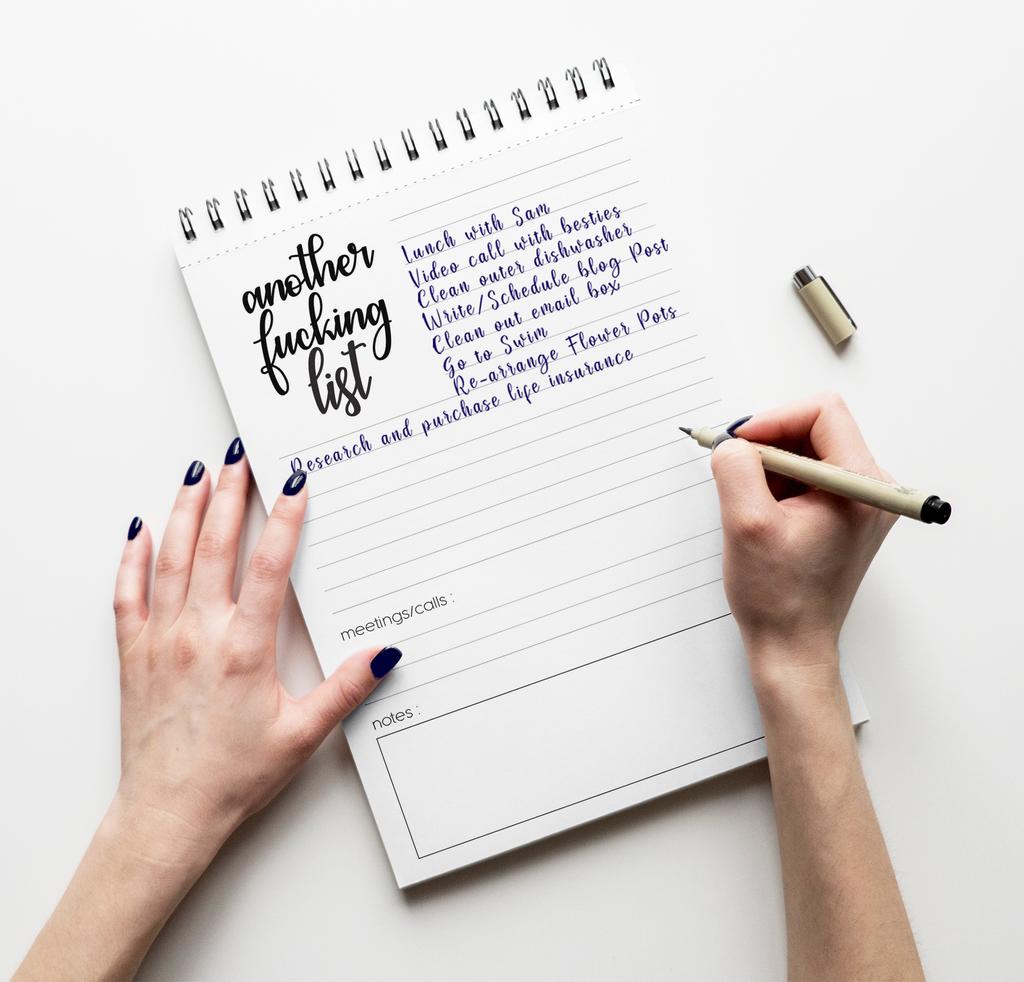 another
fucking
list
Lunch with Sam
Video call with besties
Clean outer dishwasher
Write/Schedule blog Post
Clean out email box
Go to Swim
Re-arrange Flower Pots
Research and purchase life insurance
meetings/calls :
notes :